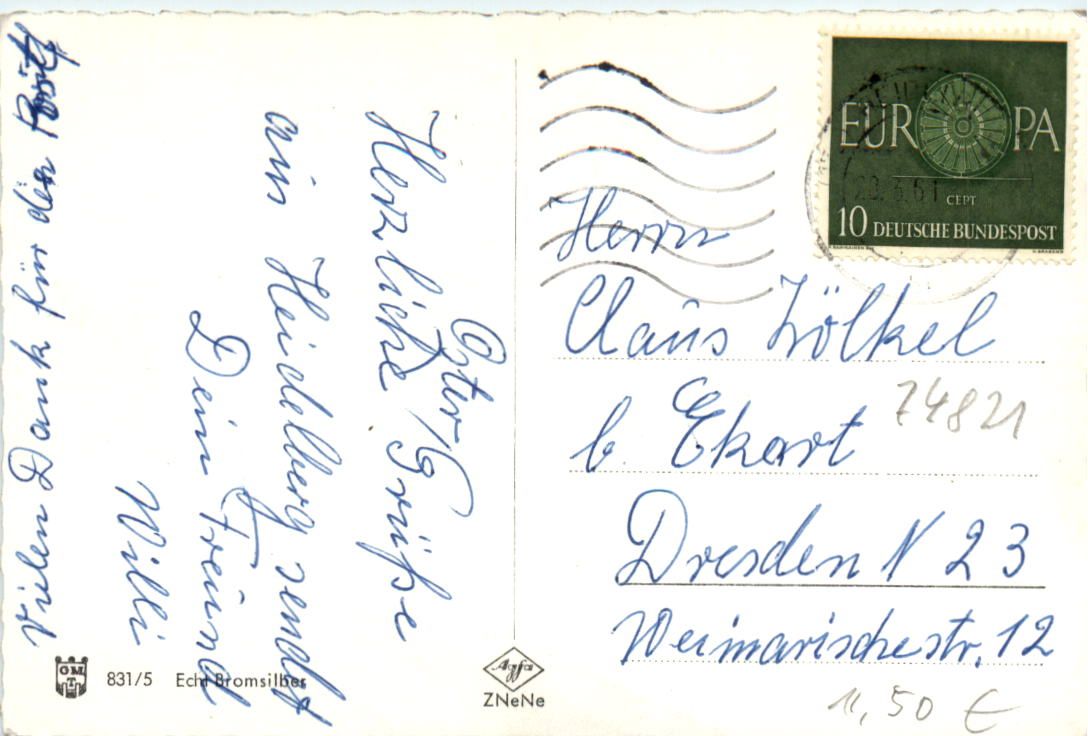 Herzliche Oster/Grüße
aus Heidelberg sendet
Dein Freund
Willi
Vielen Dank für die Post
EUROPA
CEPT
10 DEUTSCHE BUNDESPOST
20.3.61
Herrn
Claus Zölkel
b. Ekart
74821
Dresden N 23
Weimarischestr. 12
11,50 €
GMT
831/5 Echt Bromsilber
Agfa
ZNeNe